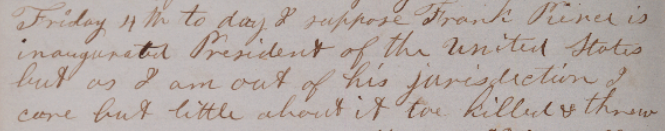 Friday 4th to day I suppose Frank Pierce is
inaugurated President of the United States
but as I am out of his jurisdiction I
care but little about it we killed & threw